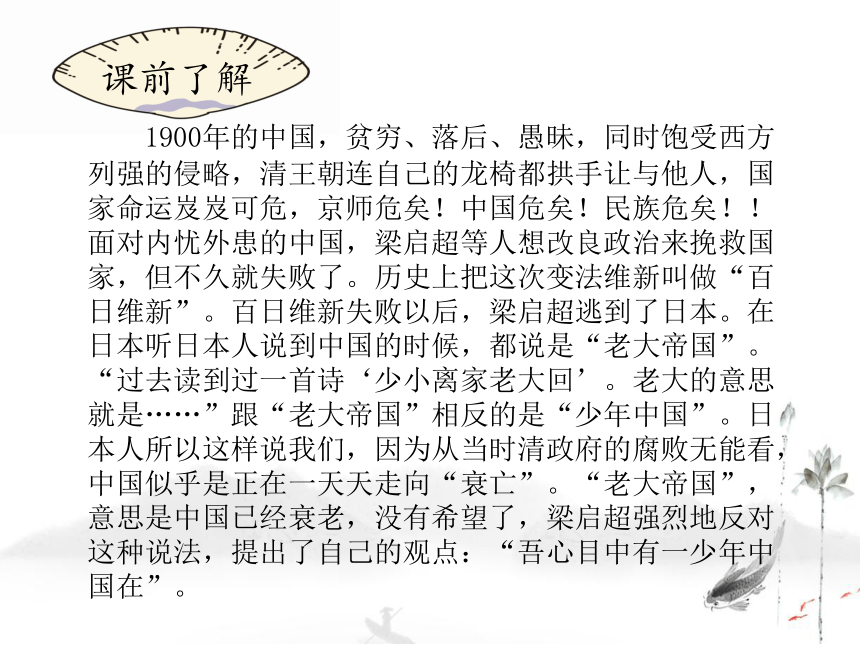 课前了解
1900年的中国，贫穷、落后、愚昧，同时饱受西方
列强的侵略，清王朝连自己的龙椅都拱手让与他人，国
家命运岌岌可危，京师危矣！中国危矣！民族危矣！！
面对内忧外患的中国，梁启超等人想改良政治来挽救国
家，但不久就失败了。历史上把这次变法维新叫做“百
日维新”。百日维新失败以后，梁启超逃到了日本。在
日本听日本人说到中国的时候，都说是“老大帝国”。
“过去读到过一首诗‘少小离家老大回’。老大的意思
就是……”跟“老大帝国”相反的是“少年中国”。日
本人所以这样说我们，因为从当时清政府的腐败无能看，
中国似乎是正在一天天走向“衰亡”。“老大帝国”，
意思是中国已经衰老，没有希望了，梁启超强烈地反对
这种说法，提出了自己的观点：“吾心目中有一少年中
国在”。